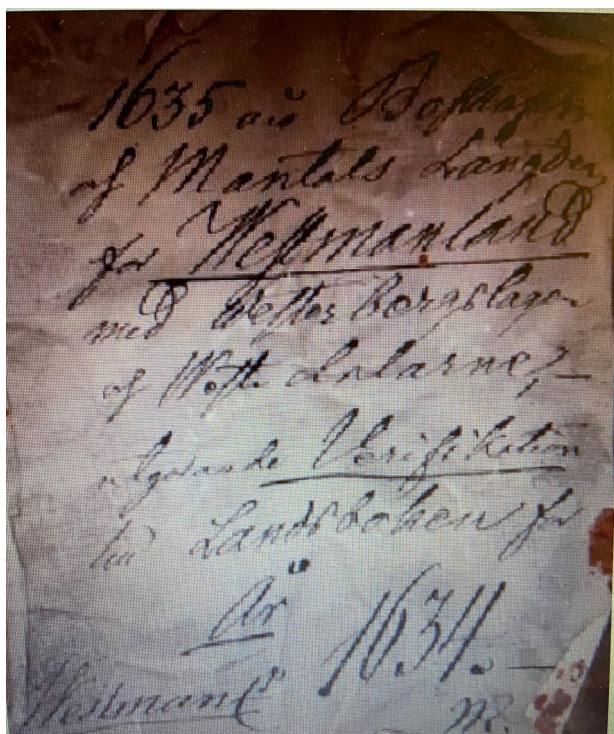 1635 års Boskaps
och Mantals Längder
för Westmanland
med Wester Bergslagen
och West. Dalarne,
utgörande Verifikation
till Landsboken för
År 1634.
Westmanl.